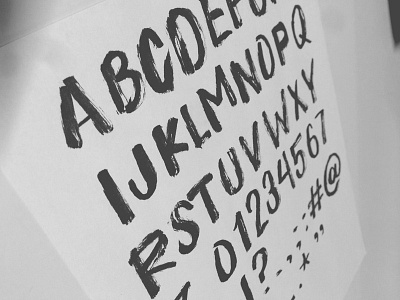 ABCDEFG
IJKLMNOPQ
RSTUVWXY
01234567
!?.,-:;#@